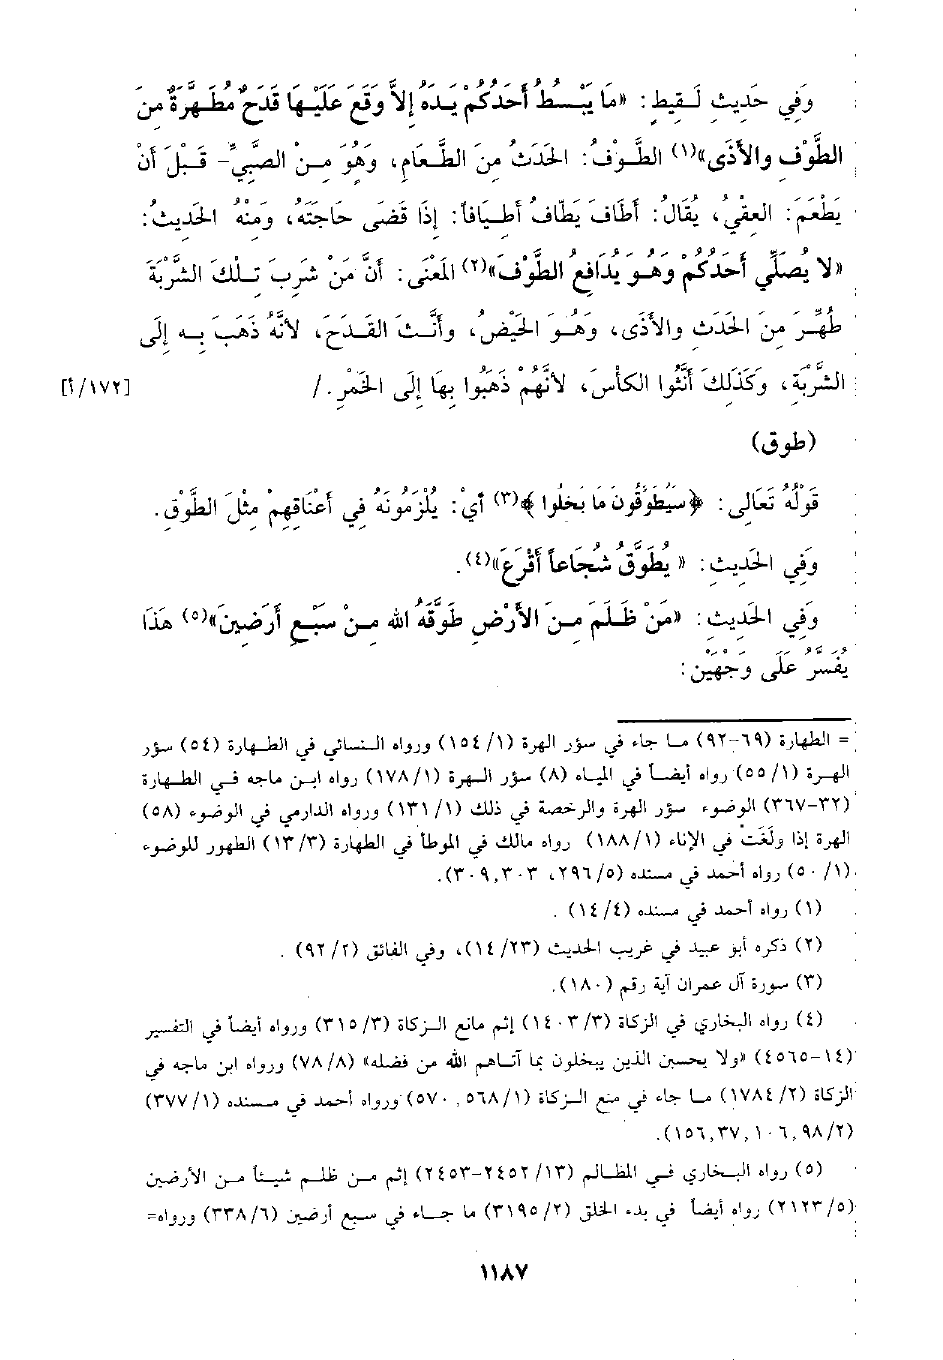 وَفِي حَدِيثِ لَقِيطٍ: «مَا يَبْسُطُ أَحَدُكُمْ يَدَهُ إِلاَّ وَقَعَ عَلَيْهَا قَدَحٌ مُطَهَّرَةٌ مِنَ
الطَّوْفِ والأَذَى»(١) الطَّوْفُ: الحَدَثُ مِنَ الطَّعَامِ، وَهُوَ مِنْ الصَّبِيِّ- قَبْلَ أَنْ
يَطْعَمَ: العِقْيُ، يُقَالُ: أَطَافَ يَطَّافُ أطِيَافاً: إِذَا قَضَى حَاجَتَهُ، وَمِنْهُ الحَدِيثُ:
«لا يُصَلِّي أَحَدُكُمْ وَهُوَ يُدَافِعُ الطَّوْفَ»(٢) المَعْنَى: أَنَّ مَنْ شَرِبَ تِلْكَ الشَّرْبَةَ
طُهِّرَ مِنَ الحَدَثِ والأَذَى، وَهُوَ الحَيْضُ، وأَنَّثَ القَدَحَ، لأَنَّهُ ذَهَبَ بِهِ إِلَى
الشَّرْبَةِ، وَكَذَلِكَ أَنَّثُوا الكَأْسَ، لأَنَّهُمْ ذَهَبُوا بِهَا إِلَى الخَمْرِ./ [١٧٢/أ]
(طوق)
قَوْلُهُ تَعَالى: ﴿سَيُطَوَّقُونَ مَا بَخِلُوا﴾(٣) أيْ: يُلْزَمُونَهُ فِي أَعْنَاقِهِمْ مِثْلَ الطَّوْقِ.
وَفِي الحَدِيثِ: « يُطَوَّقُ شُجَاعاً أَقْرَعَ»(٤).
وَفِي الحَدِيثِ: «مَنْ ظَلَمَ مِنَ الأَرْضِ طَوَّقَهُ الله مِنْ سَبْعِ أَرَضِينَ»(٥) هَذَا
يُفَسَّرُ عَلَى وَجْهَيْنِ:
= الطهارة (٦٩-٩٢) ما جاء في سؤر الهرة (١٥٤/١) ورواه النسائي في الطهارة (٥٤) سؤر
الهرة (٥٥/١) رواه أيضاً في المياه (٨) سؤر الهرة (١٧٨/١) رواه ابن ماجه في الطهارة
(٣٢-٣٦٧) الوضوء سؤر الهرة والرخصة في ذلك (١٣١/١) ورواه الدارمي في الوضوء (٥٨)
الهرة إذا ولَغَتْ في الإناء (١٨٨/١) رواه مالك في الموطأ في الطهارة (١٣/٣) الطهور للوضوء
(٥٠/١) رواه أحمد في مسنده (٢٩٦/٥، ٣٠٣,٣٠٩).
(١) رواه أحمد في مسنده (١٤/٤) .
(٢) ذكره أبو عبيد في غريب الحديث (١٤/٢٣)، وفي الفائق (٩٢/٢) .
(٣) سورة آل عمران آية رقم (١٨٠).
(٤) رواه البخاري في الزكاة (١٤٠٣/٣) إثم مانع الزكاة (٣١٥/٣) ورواه أيضاً في التفسير
(١٤-٤٥٦٥) «ولا يحسبن الذين يبخلون بما آتاهم الله من فضله» (٧٨/٨) ورواه ابن ماجه في
الزكاة (١٧٨٤/٢) ما جاء في منع الزكاة (٥٦٨/١, ٥٧٠) ورواه أحمد في مسنده (٣٧٧/١)
(٩٨/٢, ١٠٦, ٣٧, ١٥٦).
(٥) رواه البخاري في المظالم (٢٤٥٢/١٣-٢٤٥٣) إثم من ظلم شيئاً من الأرضين
(٢١٢٣/٥) رواه أيضاً في بدء الخلق (٣١٩٥/٢) ما جاء في سبع أرضين (٣٣٨/٦) ورواه=
١١٨٧